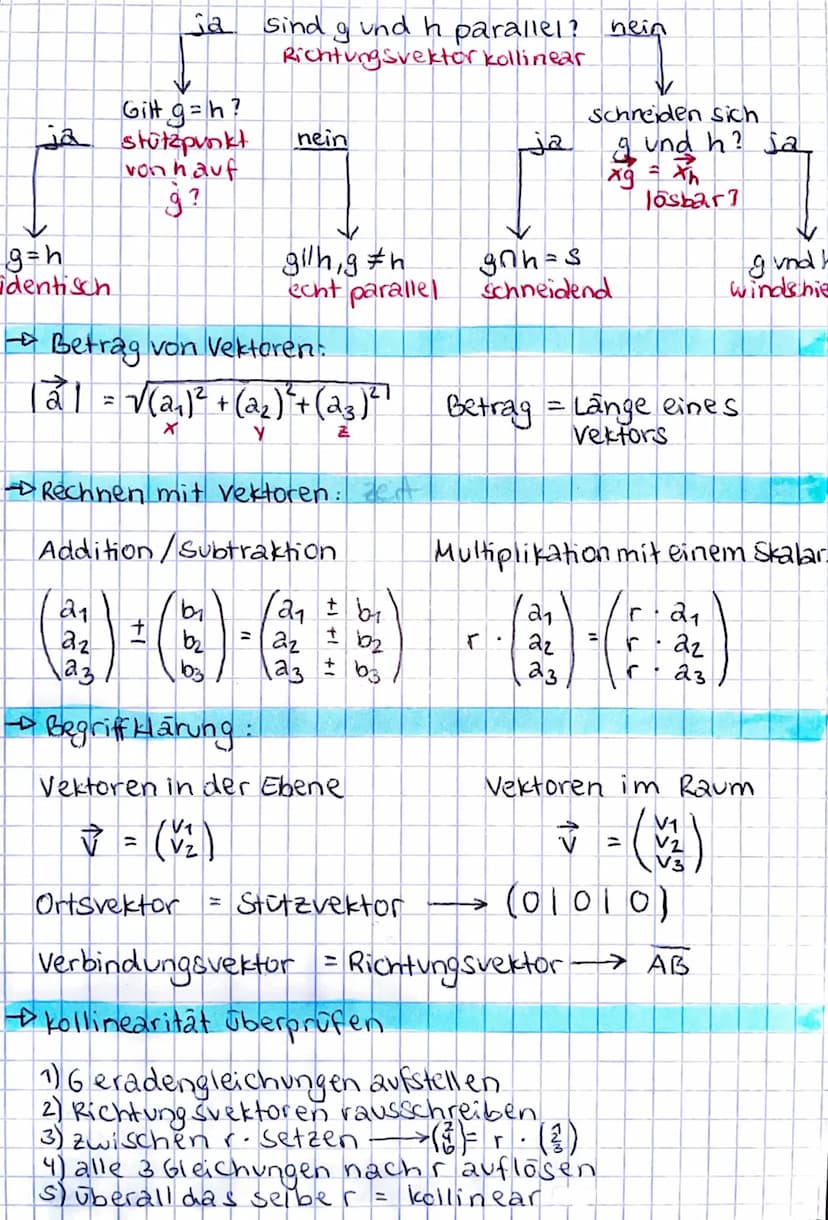 ja sind g und h parallel? nein
Richtungsvektor kollinear
Gilt g=h?
ja stützpunkt nein
von h auf
g?
schneiden sich
ja g und h? ja
xg = xh
lösbar?
g=h g∥h, g≠h g∩h=S g und h
identisch echt parallel schneidend windschie
→ Betrag von Vektoren:
|a⃗| = √(a₁)² + (a₂)² + (a₃)² Betrag = Länge eines
x y z Vektors
→ Rechnen mit Vektoren: zeit
Addition / Subtraktion Multiplikation mit einem Skalar
(a₁) ± (b₁) = (a₁ ± b₁) r · (a₁) = (r · a₁)
(a₂) (b₂) (a₂ ± b₂) (a₂) (r · a₂)
(a₃) (b₃) (a₃ ± b₃) (a₃) (r · a₃)
→ Begriffklärung:
Vektoren in der Ebene Vektoren im Raum
v⃗ = (v₁ v₂) v⃗ = (v₁ v₂ v₃)
Ortsvektor = Stützvektor → (0|0|0)
Verbindungsvektor = Richtungsvektor → AB
→ Kollinearität überprüfen
1) Geradengleichungen aufstellen
2) Richtungsvektoren rausschreiben
3) zwischen r · setzen → (2 4 6) = r · (1 2 3)
4) alle 3 Gleichungen nach r auflösen
5) überall das selbe r = kollinear